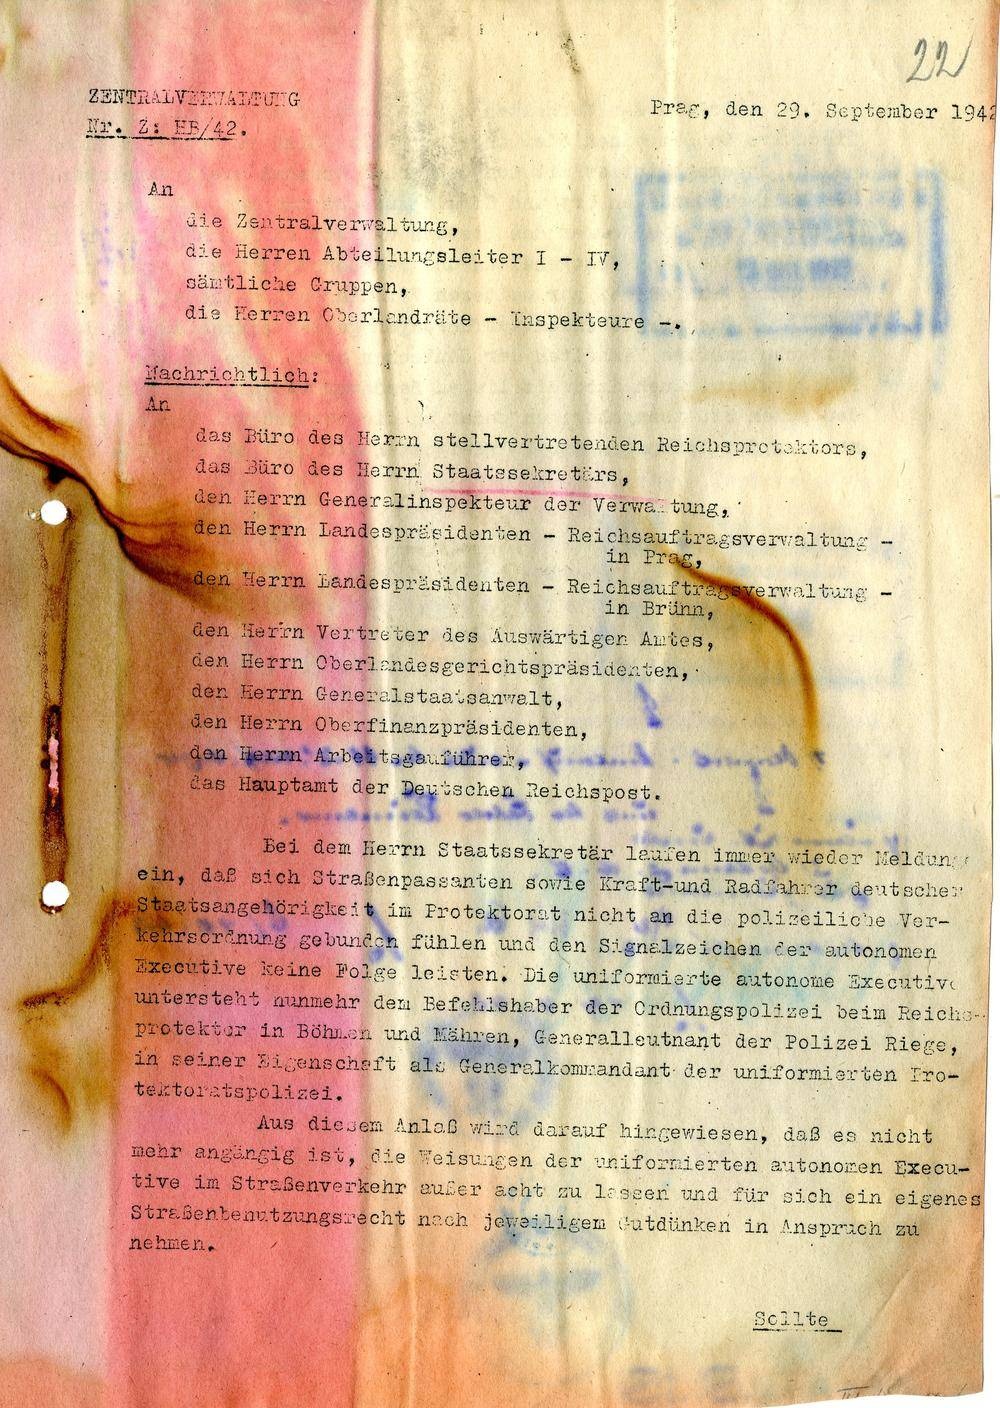 22
ZENTRALVERWALTUNG
Nr. Z: HB/42.
Prag, den 29. September 1942
An
die Zentralverwaltung,
die Herren Abteilungsleiter I - IV,
sämtliche Gruppen,
die Herren Oberlandräte - Inspekteure -.
Nachrichtlich:
An
das Büro des Herrn stellvertretenden Reichsprotektors,
das Büro des Herrn Staatssekretärs,
den Herrn Generalinspekteur der Verwaltung,
den Herrn Landespräsidenten - Reichsauftragsverwaltung -
in Prag,
den Herrn Landespräsidenten - Reichsauftragsverwaltung -
in Brünn,
den Herrn Vertreter des Auswärtigen Amtes,
den Herrn Oberlandesgerichtspräsidenten,
den Herrn Generalstaatsanwalt,
den Herrn Oberfinanzpräsidenten,
den Herrn Arbeitsgauführer,
das Hauptamt der Deutschen Reichspost.
Bei dem Herrn Staatssekretär laufen immer wieder Meldun
ein, daß sich Straßenpassanten sowie Kraft-und Radfahrer deutscher
Staatsangehörigkeit im Protektorat nicht an die polizeiliche Ver-
kehrsordnung gebunden fühlen und den Signalzeichen der autonomen
Executive keine Folge leisten. Die uniformierte autonome Executive
untersteht nunmehr dem Befehlshaber der Ordnungspolizei beim Reichs-
protektor in Böhmen und Mähren, Generalleutnant der Polizei Riege,
in seiner Eigenschaft als Generalkommandant der uniformierten Pro-
tektoratspolizei.
Aus diesem Anlaß wird darauf hingewiesen, daß es nicht
mehr angängig ist, die Weisungen der uniformierten autonomen Execu-
tive im Straßenverkehr außer acht zu lassen und für sich ein eigenes
Straßenbenutzungsrecht nach jeweiligem Gutdünken in Anspruch zu
nehmen.
Sollte